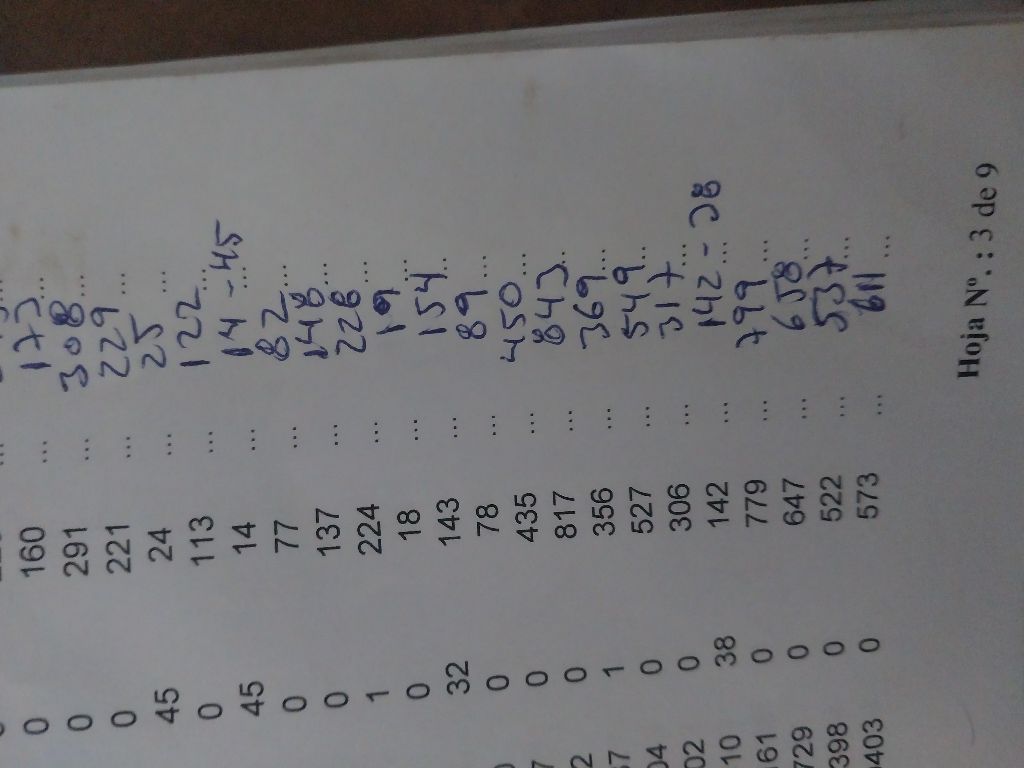 0 160 ... 173 ...
0 291 ... 308 ...
0 221 ... 229 ...
45 24 ... 25 ...
0 113 ... 122 ...
45 14 ... 14 - 45 ...
0 77 ... 82 ...
0 137 ... 148 ...
1 224 ... 228 ...
0 18 ... 19 ...
32 143 ... 154 ...
0 78 ... 89 ...
0 435 ... 450 ...
0 817 ... 843 ...
1 356 ... 369 ...
0 527 ... 549 ...
0 306 ... 317 ...
38 142 ... 142 - 38 ...
0 779 ... 799 ...
0 647 ... 658 ...
0 522 ... 537 ...
0 573 ... 611 ...
Hoja Nº. : 3 de 9